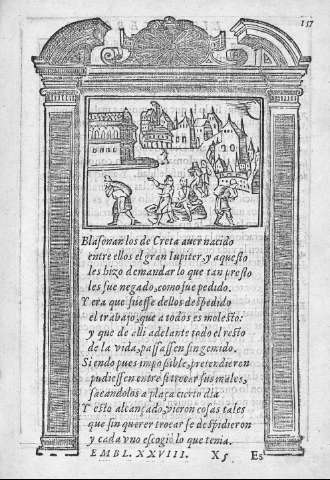 157
Blasonan los de Creta auer nacido
entre ellos el gran Iupiter, y aquesto
les hizo demandar lo que tan presto
les fue negado, como fue pedido.
Y era que fuesse dellos despedido
el trabajo, que a todos es molesto:
y que de alli adelante todo el resto
de la vida, passassen sin gemido.
Siendo pues impossible, pretendieron
pudiessen entre si trocar sus males,
sacandolos a plaça cierto dia
Y esto alcançado, vieron cosas tales
que sin querer trocar se despidieron
y cada vno escogiò lo que tenia.
EMBL. XXVIII. X5 Es